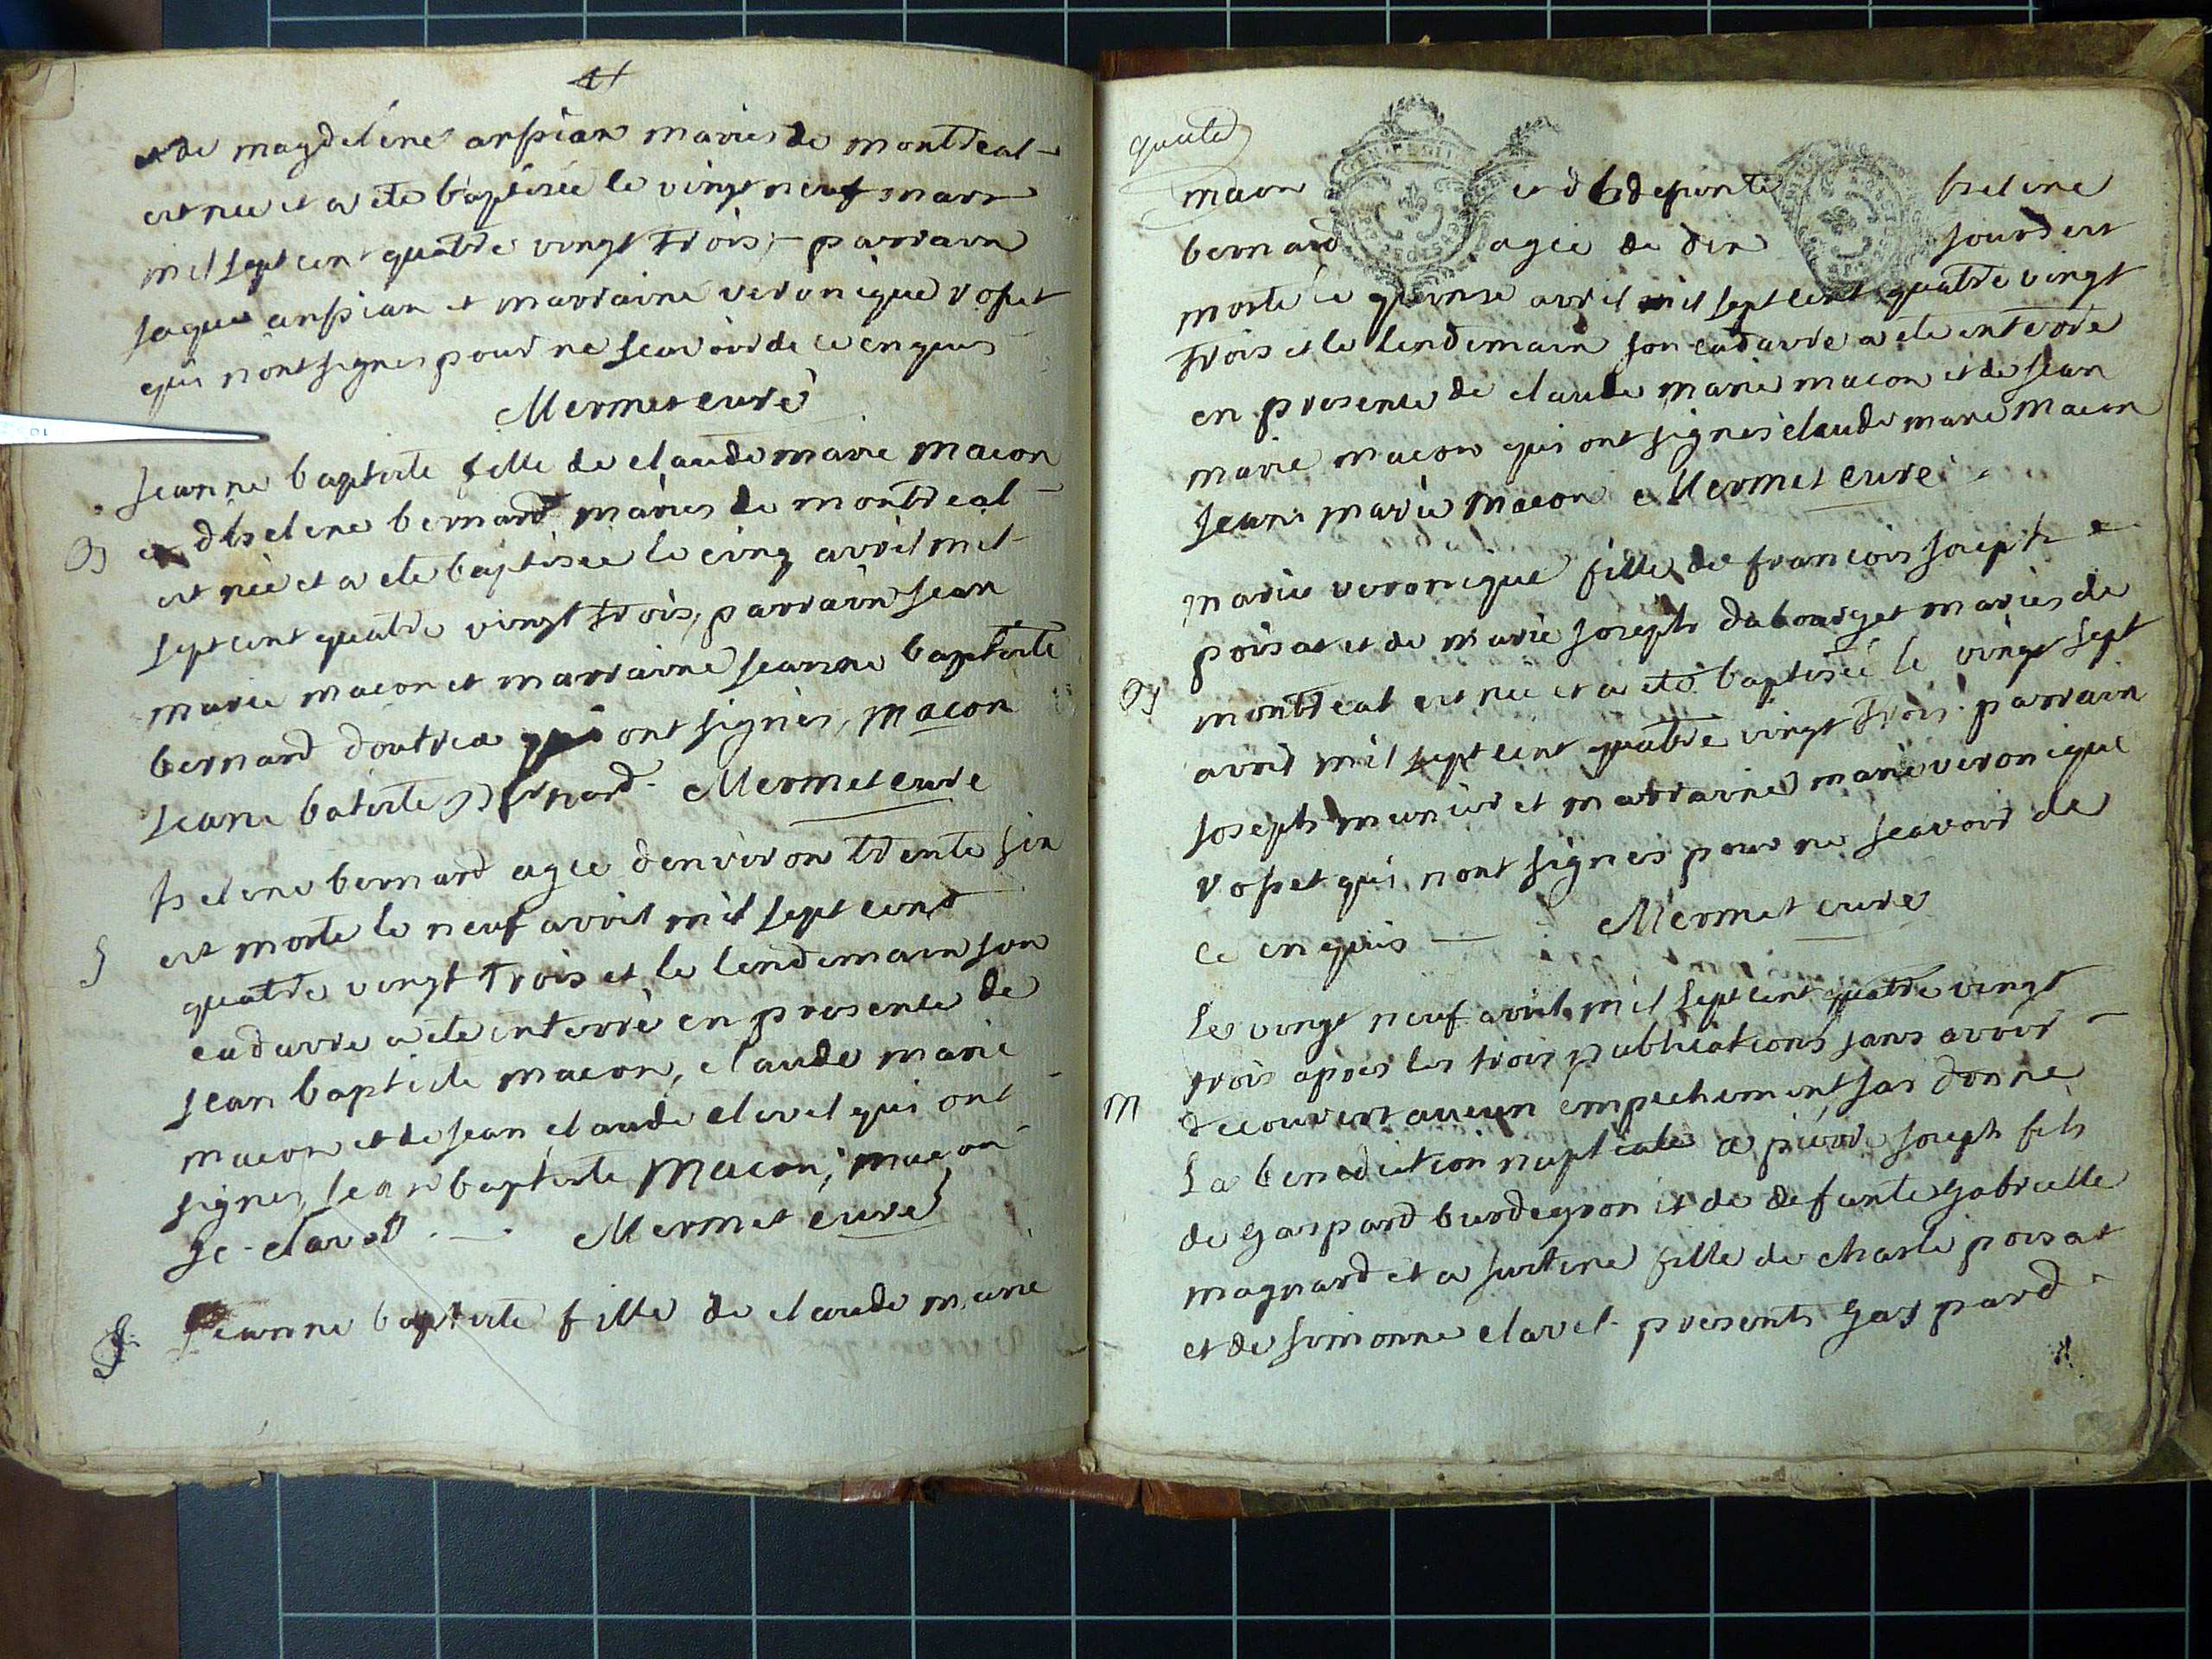 et de magdelene anspian mariés de montreal
est née et a eté baptisée le vingt neuf mars
mil sept cent quatre vingt trois, parrain
jaque anspian et marraine veronique
qui n'ont signés pour ne scavoir de ce enquis
Mermet curé
Jeanne baptiste fille de claude marie macon
et d'helene bernard mariés de montreal
est née et a eté baptisée le cinq avril mil
sept cent quatre vingt trois, parrain jean
marie macon et marraine jeanne baptiste
bernard qui ont signés, macon
jeane batiste Bernard Mermet curé
helene bernard agée d'environ trente six
est morte le neuf avril mil sept cent
quatre vingt trois et le lendemain son
cadavre a eté interré en presence de
jean baptiste macon, claude marie
macon et de jean claude clavel qui ont
signés, jean baptiste macon, macon
jc clavel Mermet curé
Jeanne baptiste fille de claude marie
quatre
macon et de defunte helene
bernard agée de dix jours est
morte le quinse avril mil sept cent quatre vingt
trois et le lendemain son cadavre a eté enterré
en presence de claude marie macon et de jean
marie macon qui ont signés claude marie macon
jean marie macon Mermet curé
marie veronique fille de francois joseph
poisat et de marie joseph mariés de
montreal est née et a eté baptisée le vingt sept
avril mil sept cent quatre vingt trois. parrain
joseph munier et marraine marie veronique
qui n'ont signés pour ne scavoir de
ce enquis Mermet curé
Le vingt neuf avril mil sept cent quatre vingt
trois après les trois publications sans avoir
decouvert aucun empechement j'ai donné
La benediction nuptiale a pierre joseph fils
de gaspard burdeyron et de defunte gabrielle
magnard et a fille de charle poisat
et de simonne clavel. presents gaspard